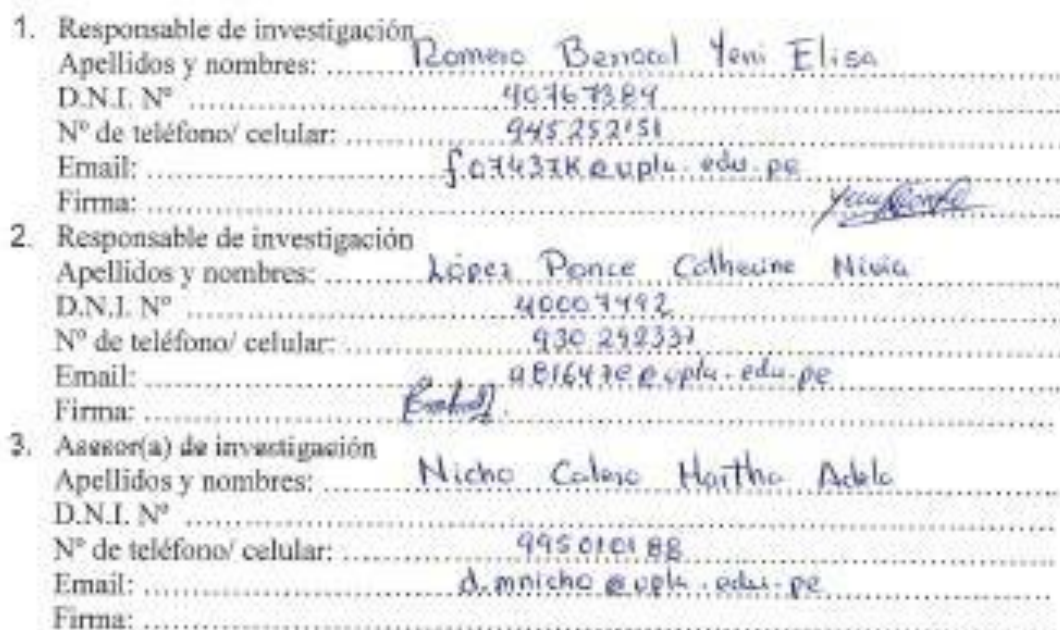 1. Responsable de investigación
Apellidos y nombres: Romero Berrocal Yeni Elisa
D.N.I. Nº 40767384
Nº de teléfono/ celular: 945252151
Email: f.07437K@upla.edu.pe
Firma:
2. Responsable de investigación
Apellidos y nombres: López Ponce Catherine Nivia
D.N.I. Nº 40007492
Nº de teléfono/ celular: 930
Email: @upla.edu.pe
Firma:
3. Asesor(a) de investigación
Apellidos y nombres: Nicho Calero Martha Adela
D.N.I. Nº
Nº de teléfono/ celular: 995010188
Email: d.mnicho@upla.edu.pe
Firma: